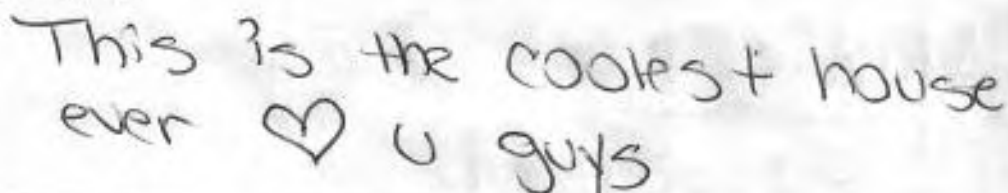 This is the coolest house
ever ♡ u guys